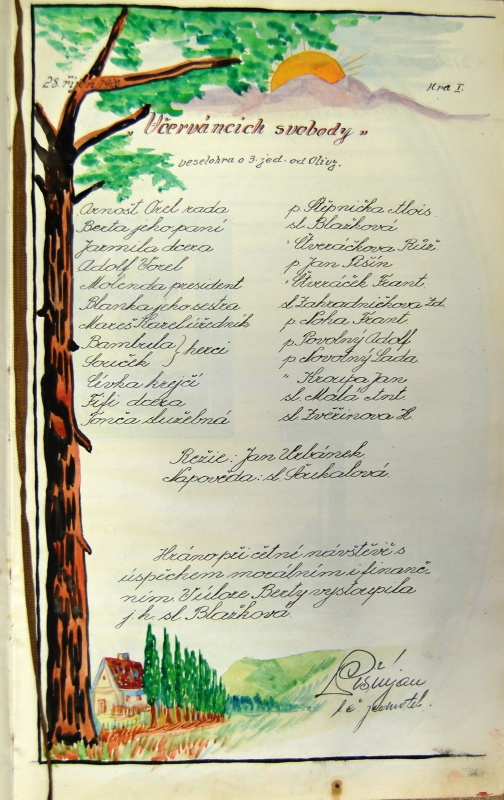 28. říjen 1920
Hra I.
„Učerváncích svobody„
veselohra o 3. jed. od Olivy.
Arnošt Orel rada p. Stěpnička Alois
Berta jeho paní sl. Blažková
Jarmila dcera " Čtveráčkova Růž.
Adolf Vorel p. Jan Pišín
Molenda president " Čtveráček Frant.
Blanka jeho sestra sl. Zahradničkova Zd.
Mareš Karel úředník p. Noha Frant.
Bambula } herci p. Povolny Adolf
Souček p. Novotny Lada
Civka krejčí " Kroupa Jan
Fifi dcera sl. Malá Ant.
Tonča služebná sl. Zvěřinova H.
Režie: Jan Urbánek.
Napověda: sl. Soukalová.
Hráno při četné návštěvě s
úspěchem morálním i finanč-
ním. V úloze Berty vystoupila
j. h. sl. Blažková.
jednatel.